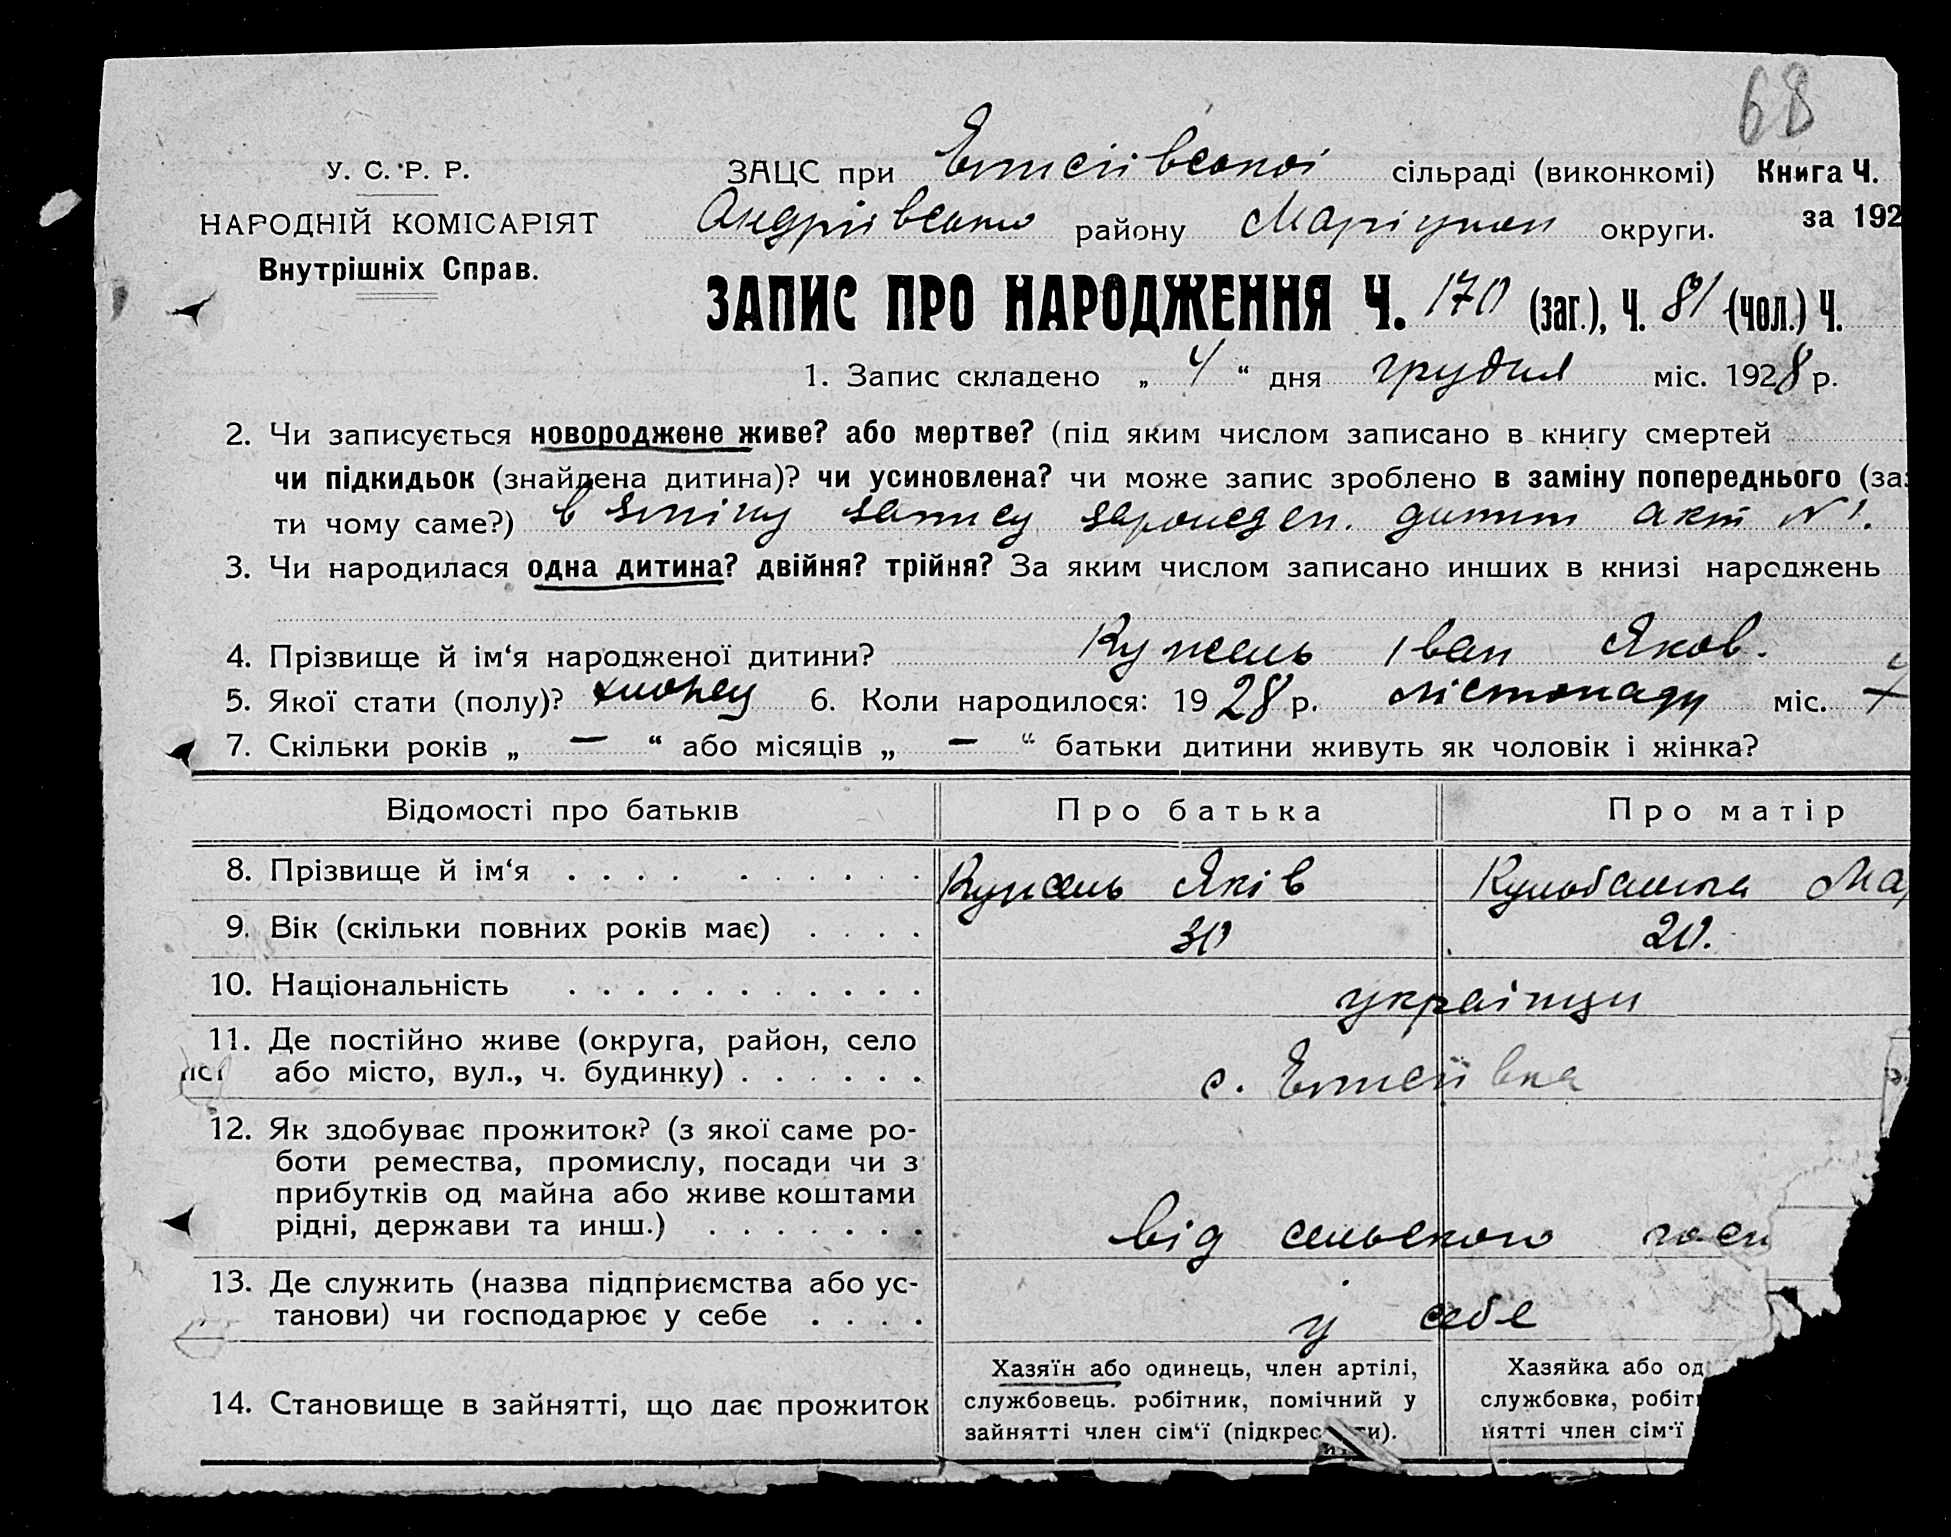 68
У. С. Р. Р.
НАРОДНІЙ КОМІСАРІЯТ
Внутрішніх Справ.
ЗАЦС при Єлисіївської сільраді (виконкомі) Книга Ч.
Андріївсько району Маріупол округи. за 192
ЗАПИС ПРО НАРОДЖЕННЯ Ч. 170 (заг.), Ч. 81 (чол.) Ч.
1. Запис складено „ 4 “ дня грудня міс. 1928 р.
2. Чи записується новороджене живе? або мертве? (під яким числом записано в книгу смертей
чи підкидьок (знайдена дитина)? чи усиновлена? чи може запис зроблено в заміну попереднього (за
ти чому саме?) в заміну запису дитини акт №
3. Чи народилася одна дитина? двійня? трійня? За яким числом записано инших в книзі народжень
4. Прізвище й ім‘я народженої дитини? Кужель Іван Яков.
5. Якої стати (полу)? хлопец 6. Коли народилося: 1928 р. лістопаду міс.
7. Скільки років „ — “ або місяців „ — “ батьки дитини живуть як чоловік і жінка?
Відомості про батьків Про батька Про матір
8. Прізвище й ім‘я Кужель Яків Кульбашна Ма
9. Вік (скільки повних років має) 30 20.
10. Національність українци
11. Де постійно живе (округа, район, село
або місто, вул., ч. будинку) с. Єлисіївка
12. Як здобуває прожиток? (з якої саме ро-
боти ремества, промислу, посади чи з
прибутків од майна або живе коштами
рідні, держави та инш.) від сельского госп
13. Де служить (назва підприємства або ус-
танови) чи господарює у себе у себе
14. Становище в зайнятті, що дає прожиток
Хазяїн або одинець, член артілі,
службовець. робітник, помічний у
зайнятті член сім‘ї (підкрес ти).
Хазяйка або од
службовка, робіт
нятті член сім‘ї